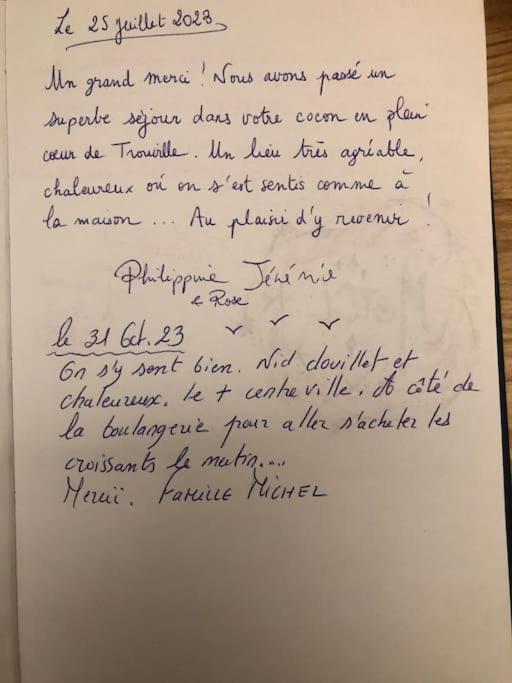 Le 25 juillet 2023
Un grand merci ! Nous avons passé un
superbe séjour dans votre cocon en plein
cœur de Trouville. Un lieu très agréable,
chaleureux où on s'est sentis comme à
la maison ... Au plaisir d'y revenir !
Philippine Jérémie
& Rose
le 31 Oct. 23
On s'y sent bien. Nid douillet et
chaleureux. Le + centre ville. A côté de
la boulangerie pour aller s'acheter les
croissants le matin....
Merciï. FAMILLE MICHEL